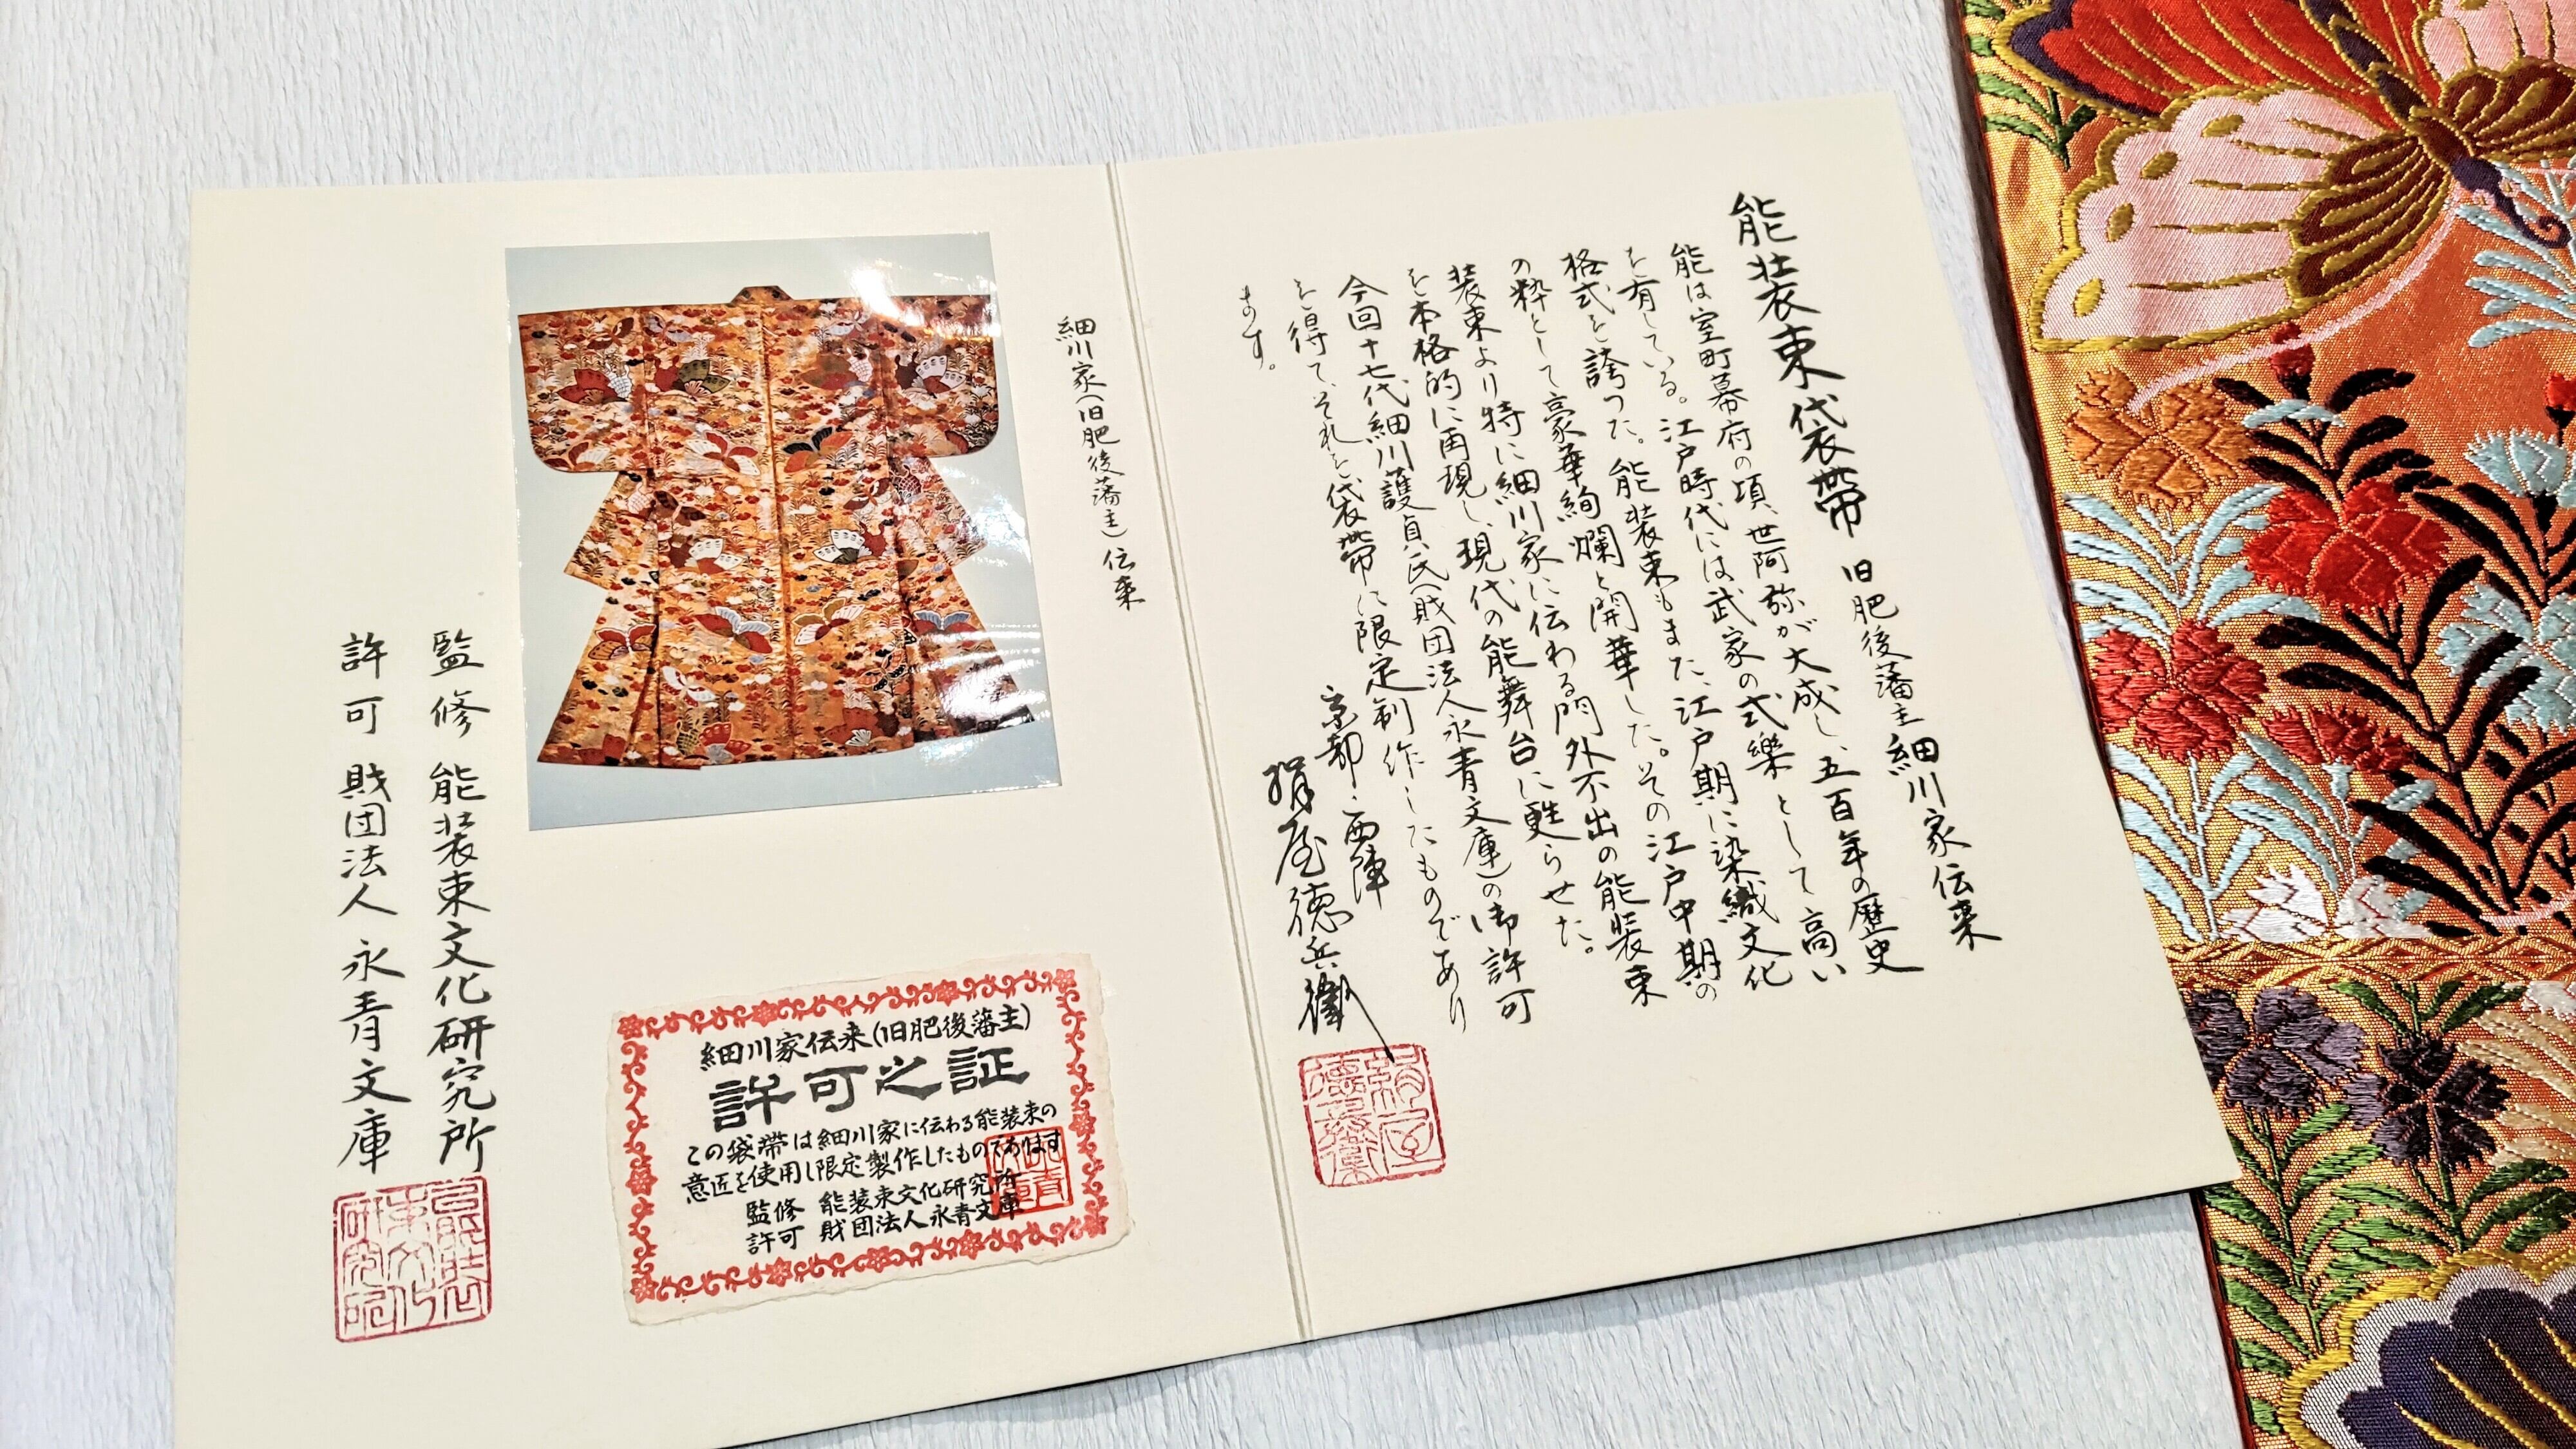 能装束袋帯 旧肥後藩主細川家伝来
能は室町幕府の頃、世阿弥が大成し、五百年の歴史
を有している。江戸時代には武家の式樂として高い
格式を誇った。能装束もまた、江戸期に染織文化
の粋として豪華絢爛と開華した。その江戸中期の
装束より特に細川家に伝わる門外不出の能装束
を本格的に再現し、現代の能舞台に甦らせた。
今回十七代細川護貞氏(財団法人永青文庫)の御許可
を得て、それを袋帯に限定制作したものであり
ます。
京都・西陣
絹屋徳兵衞
細川家(旧肥後藩主)伝来
細川家伝来(旧肥後藩主)
許可之証
この袋帯は細川家に伝わる能装束の
意匠を使用し限定製作したものであります
監修 能装束文化研究所
許可 財団法人永青文庫
監修 能装束文化研究所
許可 財団法人永青文庫